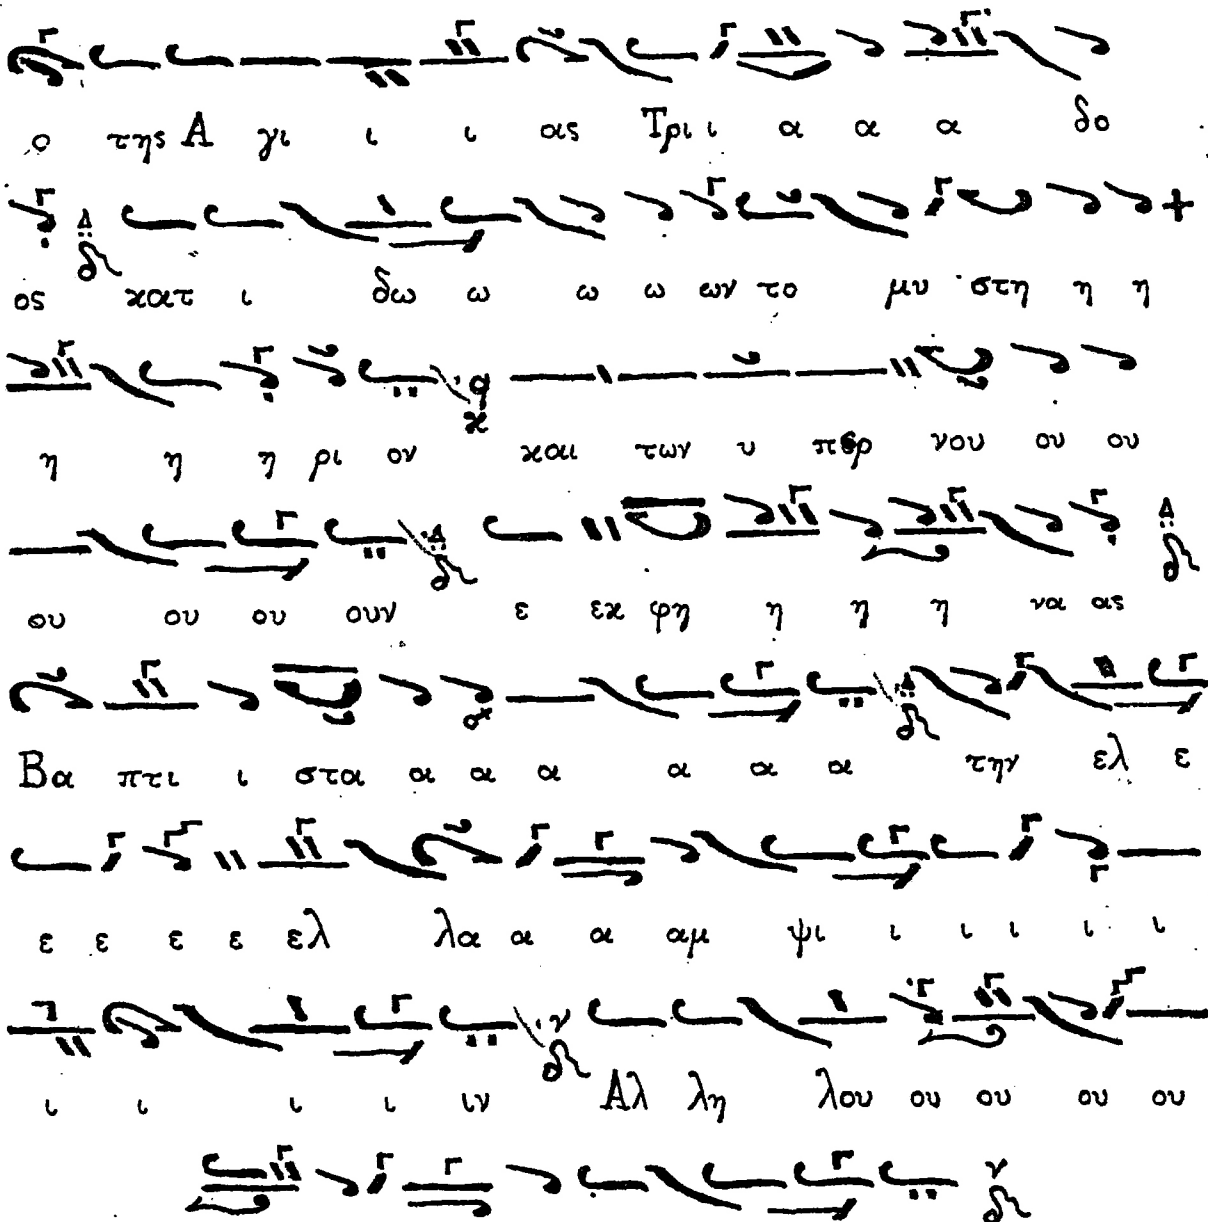 ο της Α γι ι ι ας Τρι ι α α α δο
ος κατ ι δω ω ω ω ων το μυ στη η η
η η η ρι ον και των υ περ νου ου ου
ου ου ου ουν ε εκ φη η η η να ας
Βα πτι ι στα α α α α α α την ελ ε
ε ε ε ε ελ λα α α αμ ψι ι ι ι ι ι
ι ι ι ι ιν Αλ λη λου ου ου ου ου